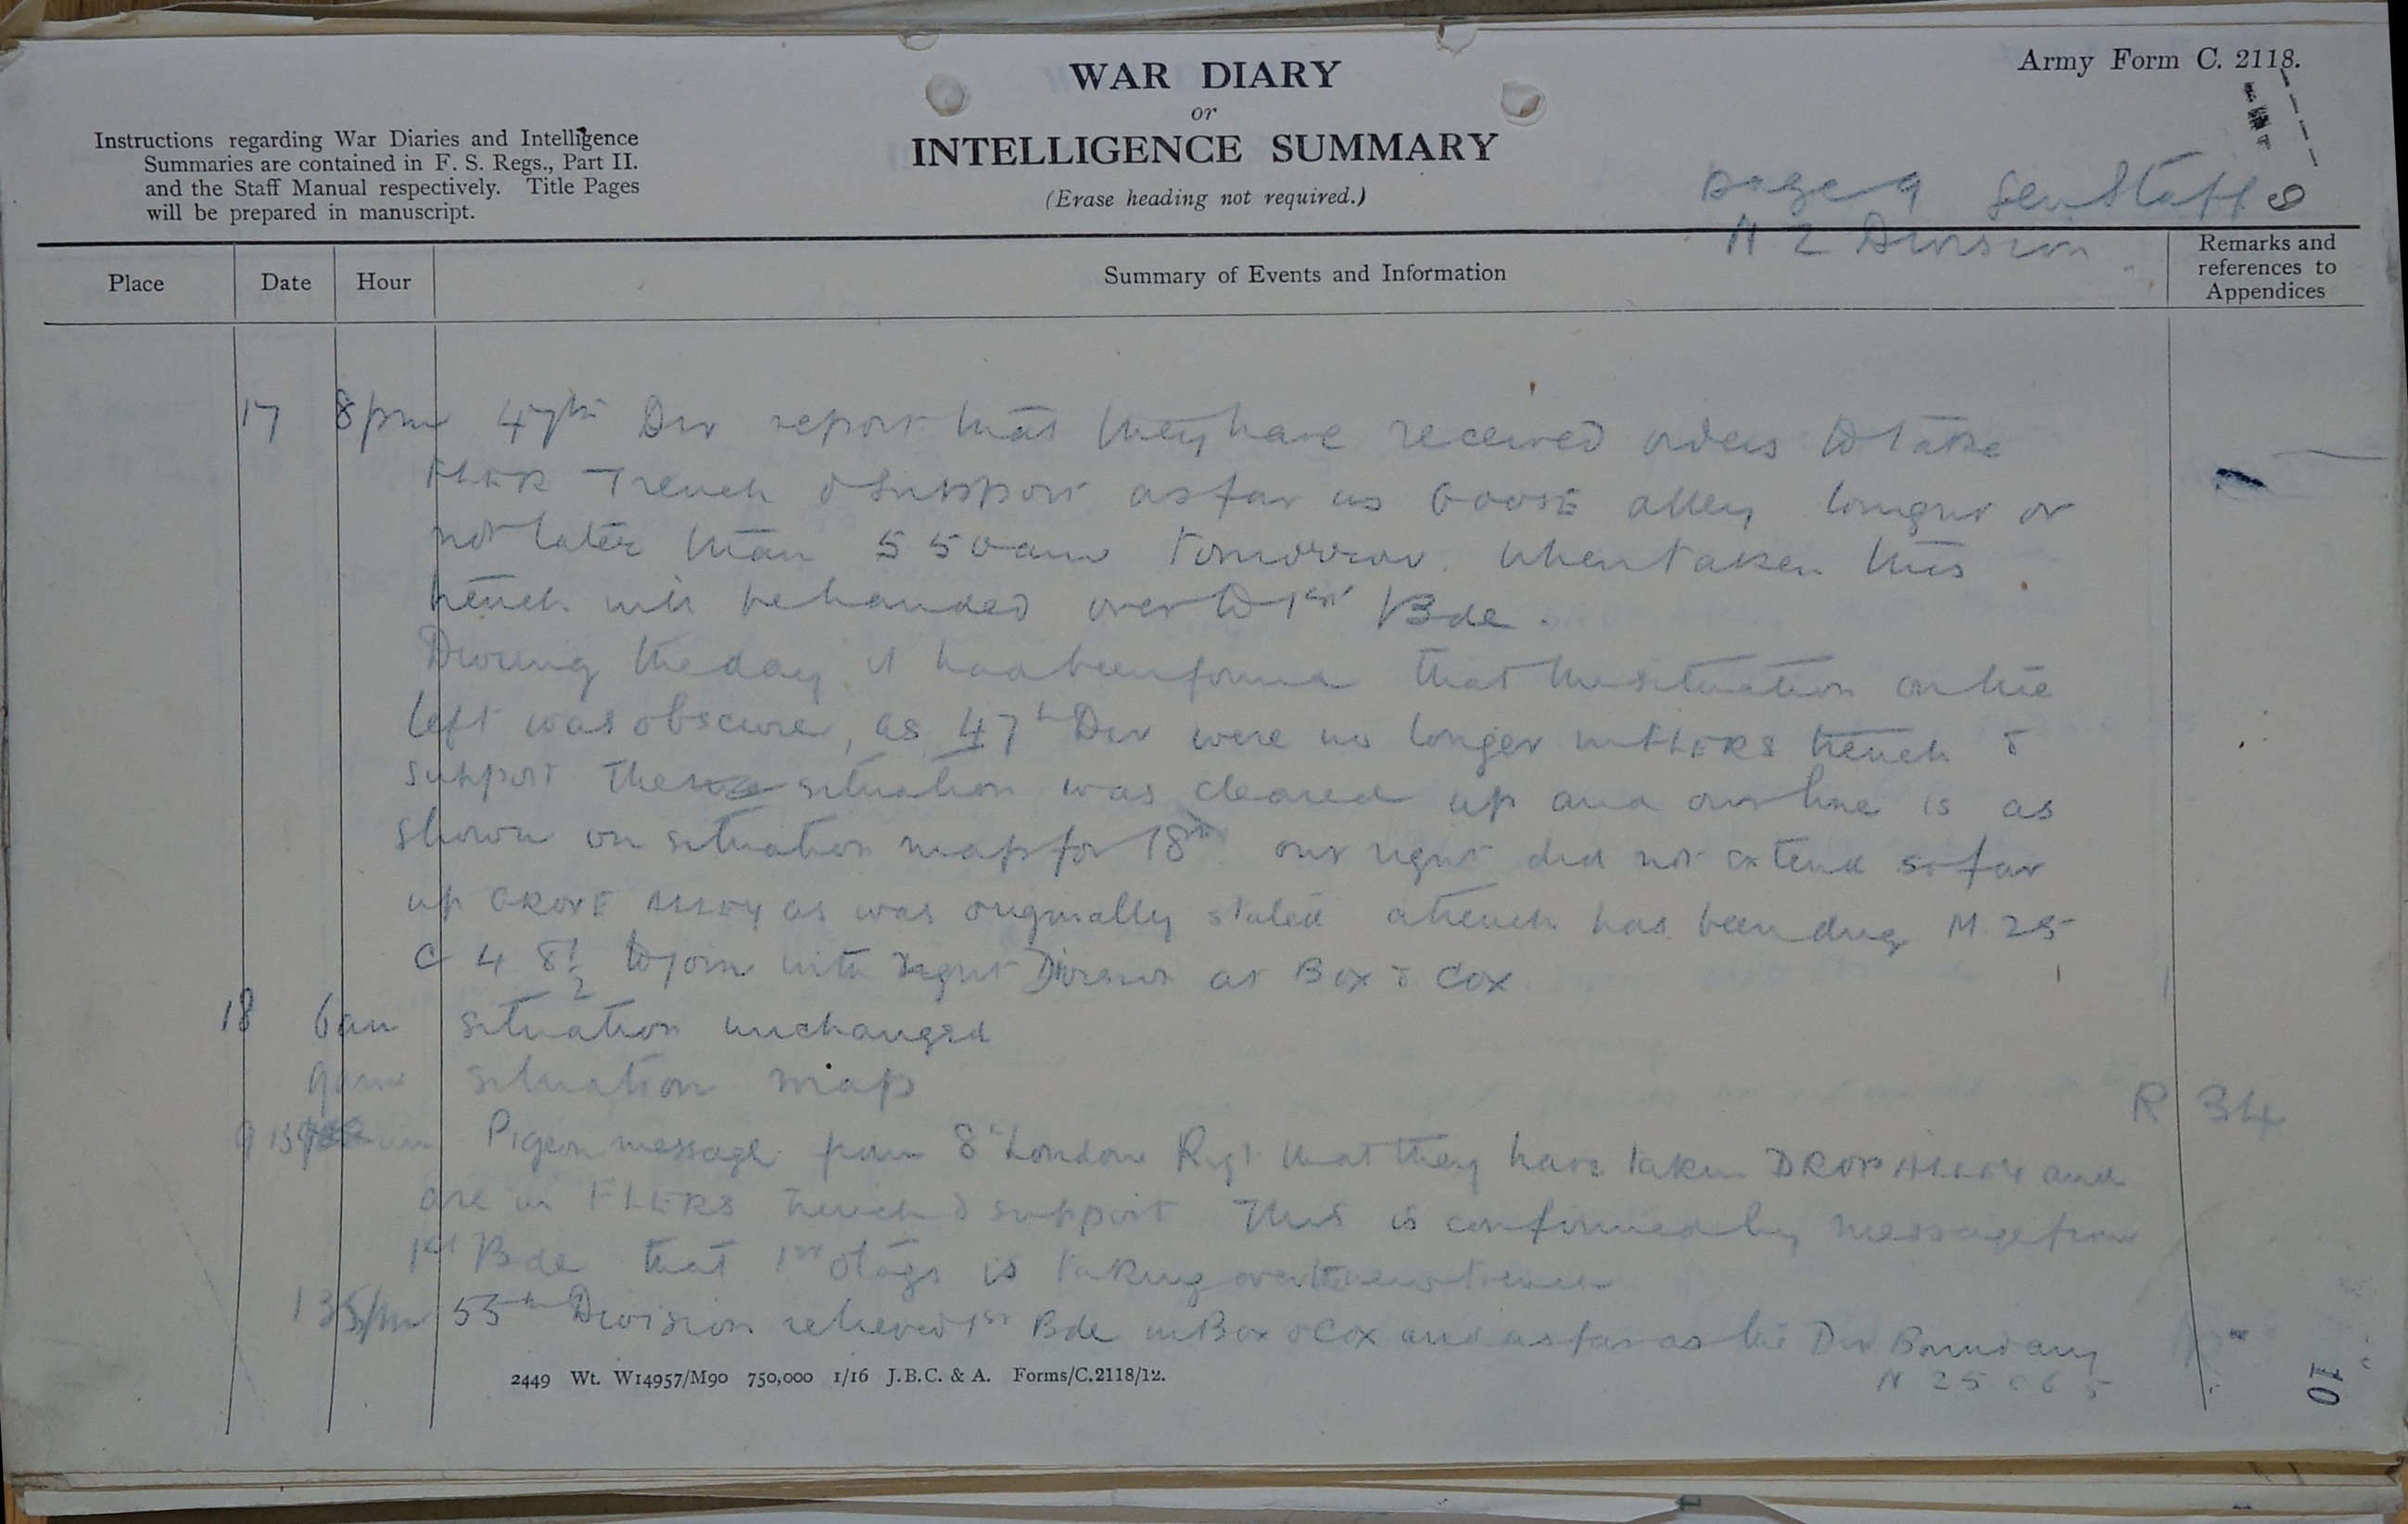 Army Form C. 2118.
WAR DIARY
or
INTELLIGENCE SUMMARY
(Erase heading not required.)
Instructions regarding War Diaries and Intelligence
Summaries are contained in F. S. Regs., Part II.
and the Staff Manual respectively. Title Pages
will be prepared in manuscript.
Page 9 Gen Staff 9
N Z Division
Place Date Hour Summary of Events and Information Remarks and references to Appendices
17 8pm 47th Div report that they have received orders to take
FLER Trench & Support as far as GOOSE alley tonight or
not later than 5 50am tomorrow. When taken this
trench will be handed over to 1st Bde.
During the day it had been found that the situation on the
left was obscure, as 47th Div were no longer in FLERS trench &
support the situation was cleared up and our line is as
shown on situation map for 18th our right did not extend so far
up GROVE ALLEY as was originally stated a trench has been dug M 25
C 4 8½ to join with right Division at Box & Cox
18 6am situation unchanged
9am situation map R 34
9 15 am Pigeon message from 8th London Regt that they have taken DROP ALLEY and
are in FLERS trench & support This is confirmed by message from
1st Bde that 1st Otago is taking over the new trench
1 35pm 55th Division relieved 1st Bde in Box & Cox and as far as the Div Boundary
N 25 c 6 5
2449 Wt. W14957/M90 750,000 1/16 J.B.C. & A. Forms/C.2118/12.
10